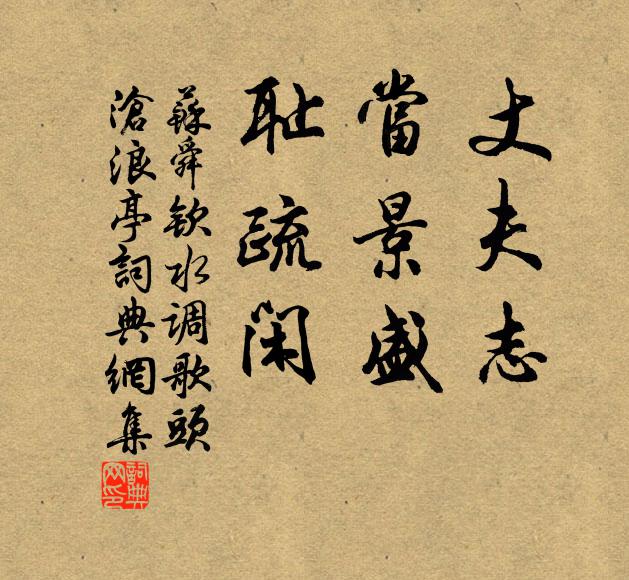 丈夫志
當景盛
耻疏閑
蘇舜欽水调歌頭
滄浪亭詞典網集
詞典
网印